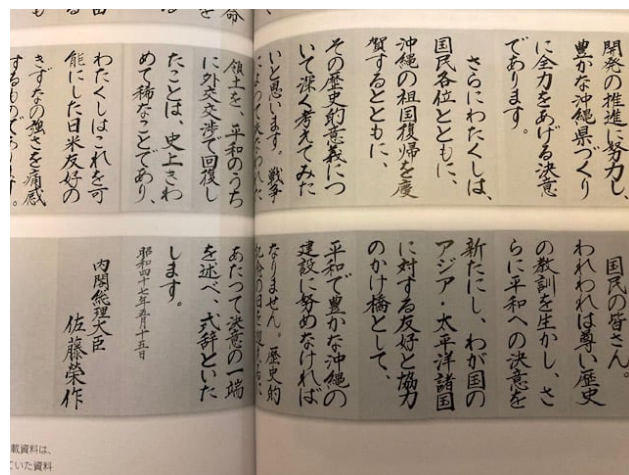 開発の推進に努力し、
豊かな沖縄県づくり
に全力をあげる決意
であります。
さらにわたくしは、
国民各位とともに、
沖縄の祖国復帰を慶
賀するとともに、
その歴史的意義につ
いて深く考えてみた
いと思います。戦争
によって失われた
領土を、平和のうち
に外交交渉で回復し
たことは、史上きわ
めて稀なことであり、
わたくしはこれを可
能にした日米友好の
きずなの強さを痛感
するものであります。
国民の皆さん。
われわれは尊い歴史
の教訓を生かし、さ
らに平和への決意を
新たにし、わが国の
アジア・太平洋諸国
に対する友好と協力
のかけ橋として、
平和で豊かな沖縄の
建設に努めなければ
なりません。歴史的
あたって決意の一端
を述べ、式辞といた
します。
昭和四十七年五月十五日
内閣総理大臣
佐藤榮作
載資料は、
ていた資料